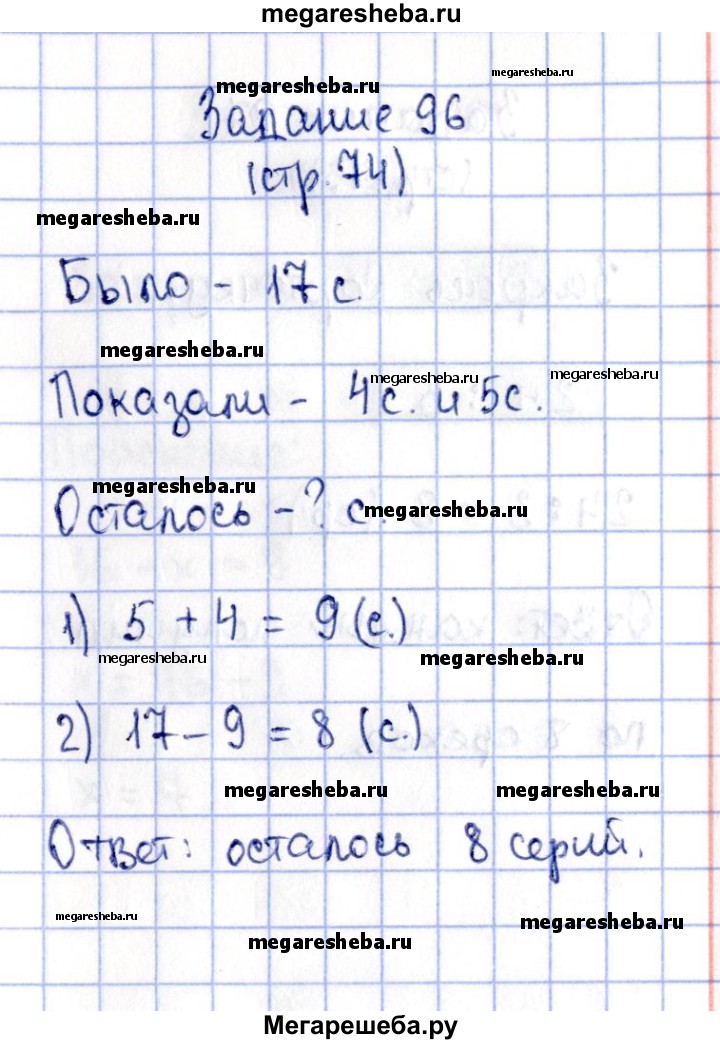 megaresheba.ru
megaresheba.ru
megaresheba.ru
Задание 96
(стр. 74)
megaresheba.ru
Было - 17 с.
megaresheba.ru
megaresheba.ru
megaresheba.ru
Показали - 4 с. и 5 с.
megaresheba.ru
Осталось - ? с.
megaresheba.ru
1) 5 + 4 = 9 (с.)
megaresheba.ru
megaresheba.ru
2) 17 - 9 = 8 (с.)
megaresheba.ru
megaresheba.ru
Ответ: осталось 8 серий.
megaresheba.ru
megaresheba.ru
megaresheba.ru
Мегарешеба.ру